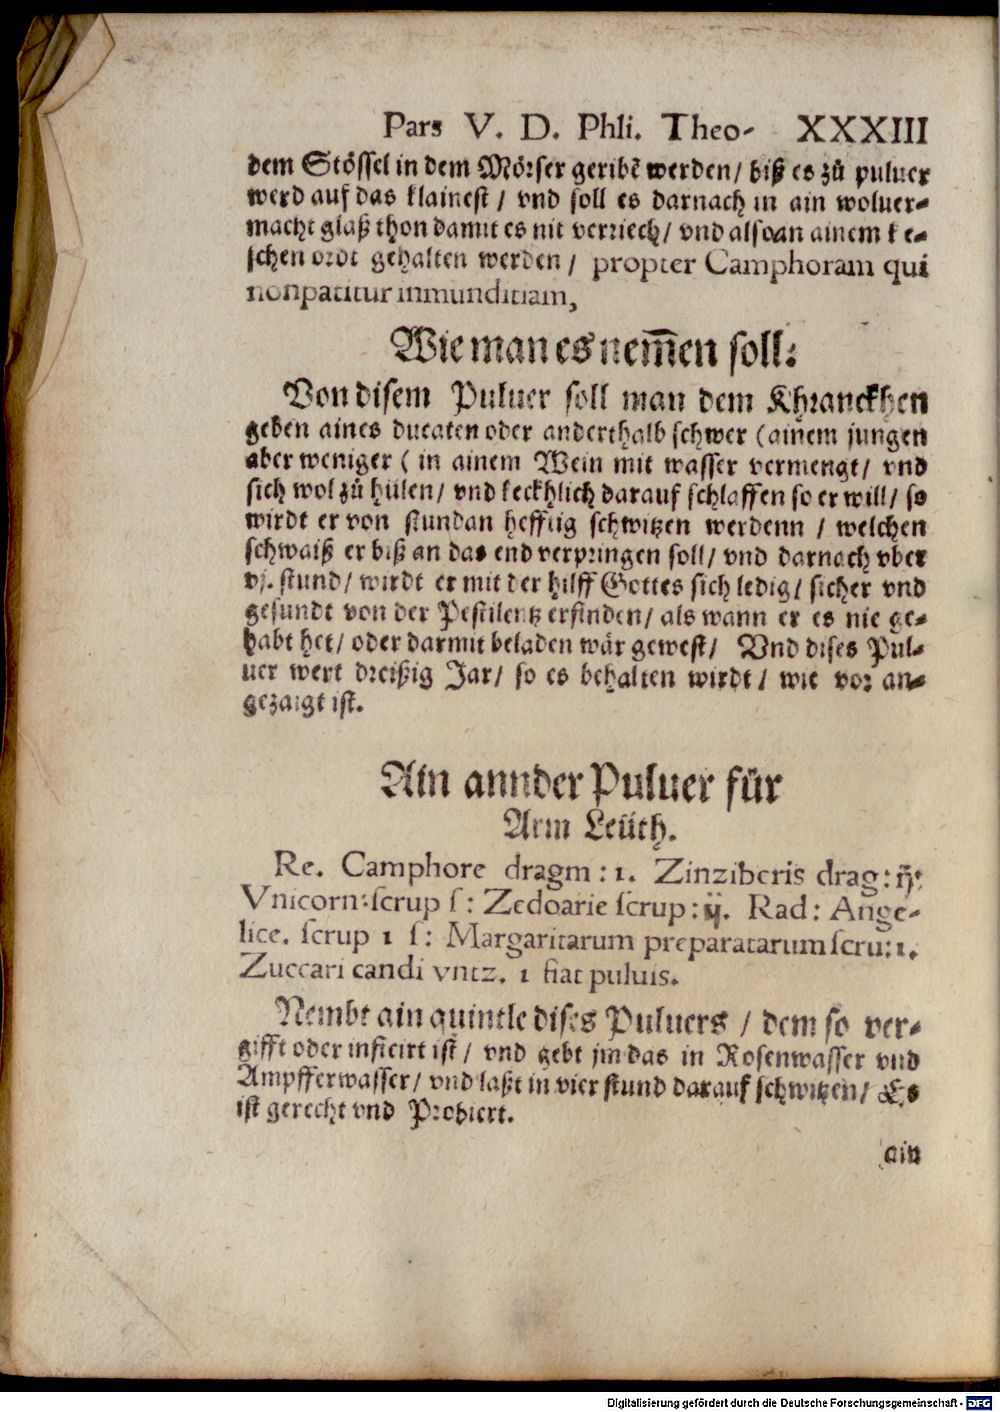 Pars V. D. Phli. Theo- XXXIII
dem Stössel in dem Mörser geribē werden/ biß es zů puluer
werd auf das klainest / vnd soll es darnach in ain woluer-
macht glaß thon damit es nit verriech/ vnd also an ainem ke-
schen ordt gehalten werden / propter Camphoram qui
non patitur inmunditiam,
Wie man es nem̄en soll:
Von disem Puluer soll man dem Khranckhen
geben aines ducaten oder anderthalb schwer (ainem jungen
aber weniger ( in ainem Wein mit wasser vermengt/ vnd
sich wol zů hülen/ vnd keckhlich darauf schlaffen so er will/ so
wirdt er von stundan hefftig schwitzen werdenn / welchen
schwaiß er biß an das end verpringen soll/ vnd darnach vber
vj. stund/ wirdt er mit der hilff Gottes sich ledig/ sicher vnd
gesundt von der Pestilentz erfinden/ als wann er es nie ge-
habt het/ oder darmit beladen wär gewest/ Vnd dises Pul-
uer wert dreißig Jar/ so es behalten wirdt/ wie vor an-
gezaigt ist.
Ain annder Puluer für
Arm Leüth.
Re. Camphore dragm: 1. Zinziberis drag: ij:
Vnicorn: scrup s: Zedoarie scrup: ij. Rad: Ange-
lice. scrup 1 s: Margaritarum preparatarum scru: 1.
Zuccari candi vntz. 1 fiat puluis.
Nembt ain quintle dises Puluers / dem so ver-
gifft oder inficirt ist/ vnd gebt jm das in Rosenwasser vnd
Ampfferwasser/ vnd laßt in vier stund darauf schwitzen/ Es
ist gerecht vnd Probiert.
ain
Digitalisierung gefördert durch die Deutsche Forschungsgemeinschaft - DFG